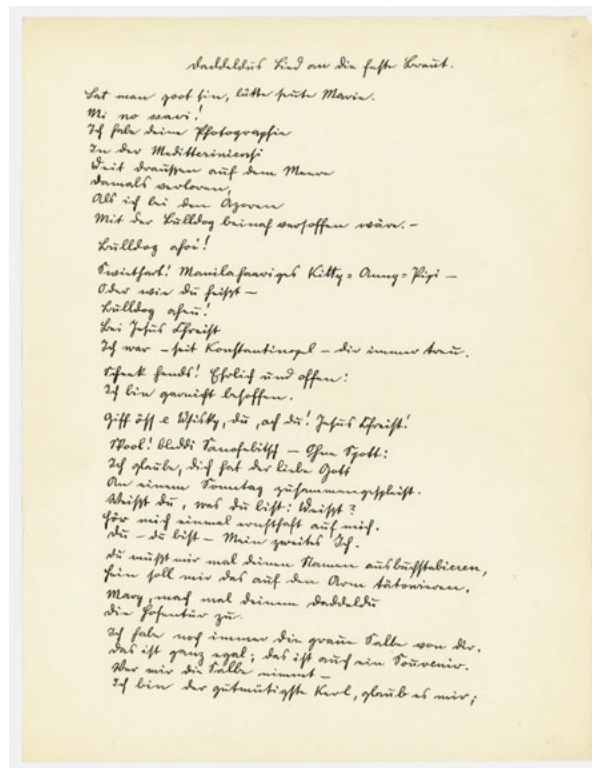 Daddeldus Lied an die feste Braut.
Lat man goot sin, lütte seute Marie.
Mi no savi!
Ich habe deine Photographie
In der Meditteriniensi
Weit draußen auf dem Meere
Damals verloren,
Als ich bei den Azoren
Mit der Bulldog beinah versoffen wäre. –
Bulldog ahoi!
Swiethart! Manilahaariges Kitty-Anny-Pipi –
Oder wie du heißt –
Bulldog aheu!
Bei Jesus Chreist
Ich war – seit Konstantinopel – dir immer treu.
Scheek hends! Ehrlich und offen:
Ich bin garnicht besoffen.
Giff öss e Whisky, du, ach du! Jesus Chreist!
Skool! bleddi Sanofebitsch – Ohne Spott:
Ich glaube, dich hat der liebe Gott
An einem Sonntag zusammengespleist.
Weißt du, was du bist: Weißt?
Hör mich einmal ernsthaft auf mich.
Du – du bist – Mein zweites Ich.
Du mußt mir mal deinen Namen ausbuchstabieren,
Hein soll mir das auf den Arm tätowieren.
Mary, mach mal deinem Daddeldu
Die Hosentür zu.
Ich habe noch immer die graue Salbe von dir.
Das ist ganz egal; das ist auch ein Souvenir.
Wer mir die Salbe nimmt –
Ich bin der gutmütigste Kerl, glaub es mir;